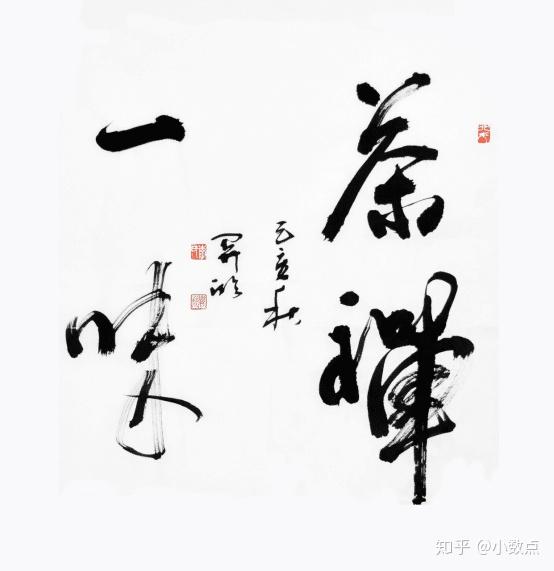 茶禪
己亥秋
一味
知乎 @小数点